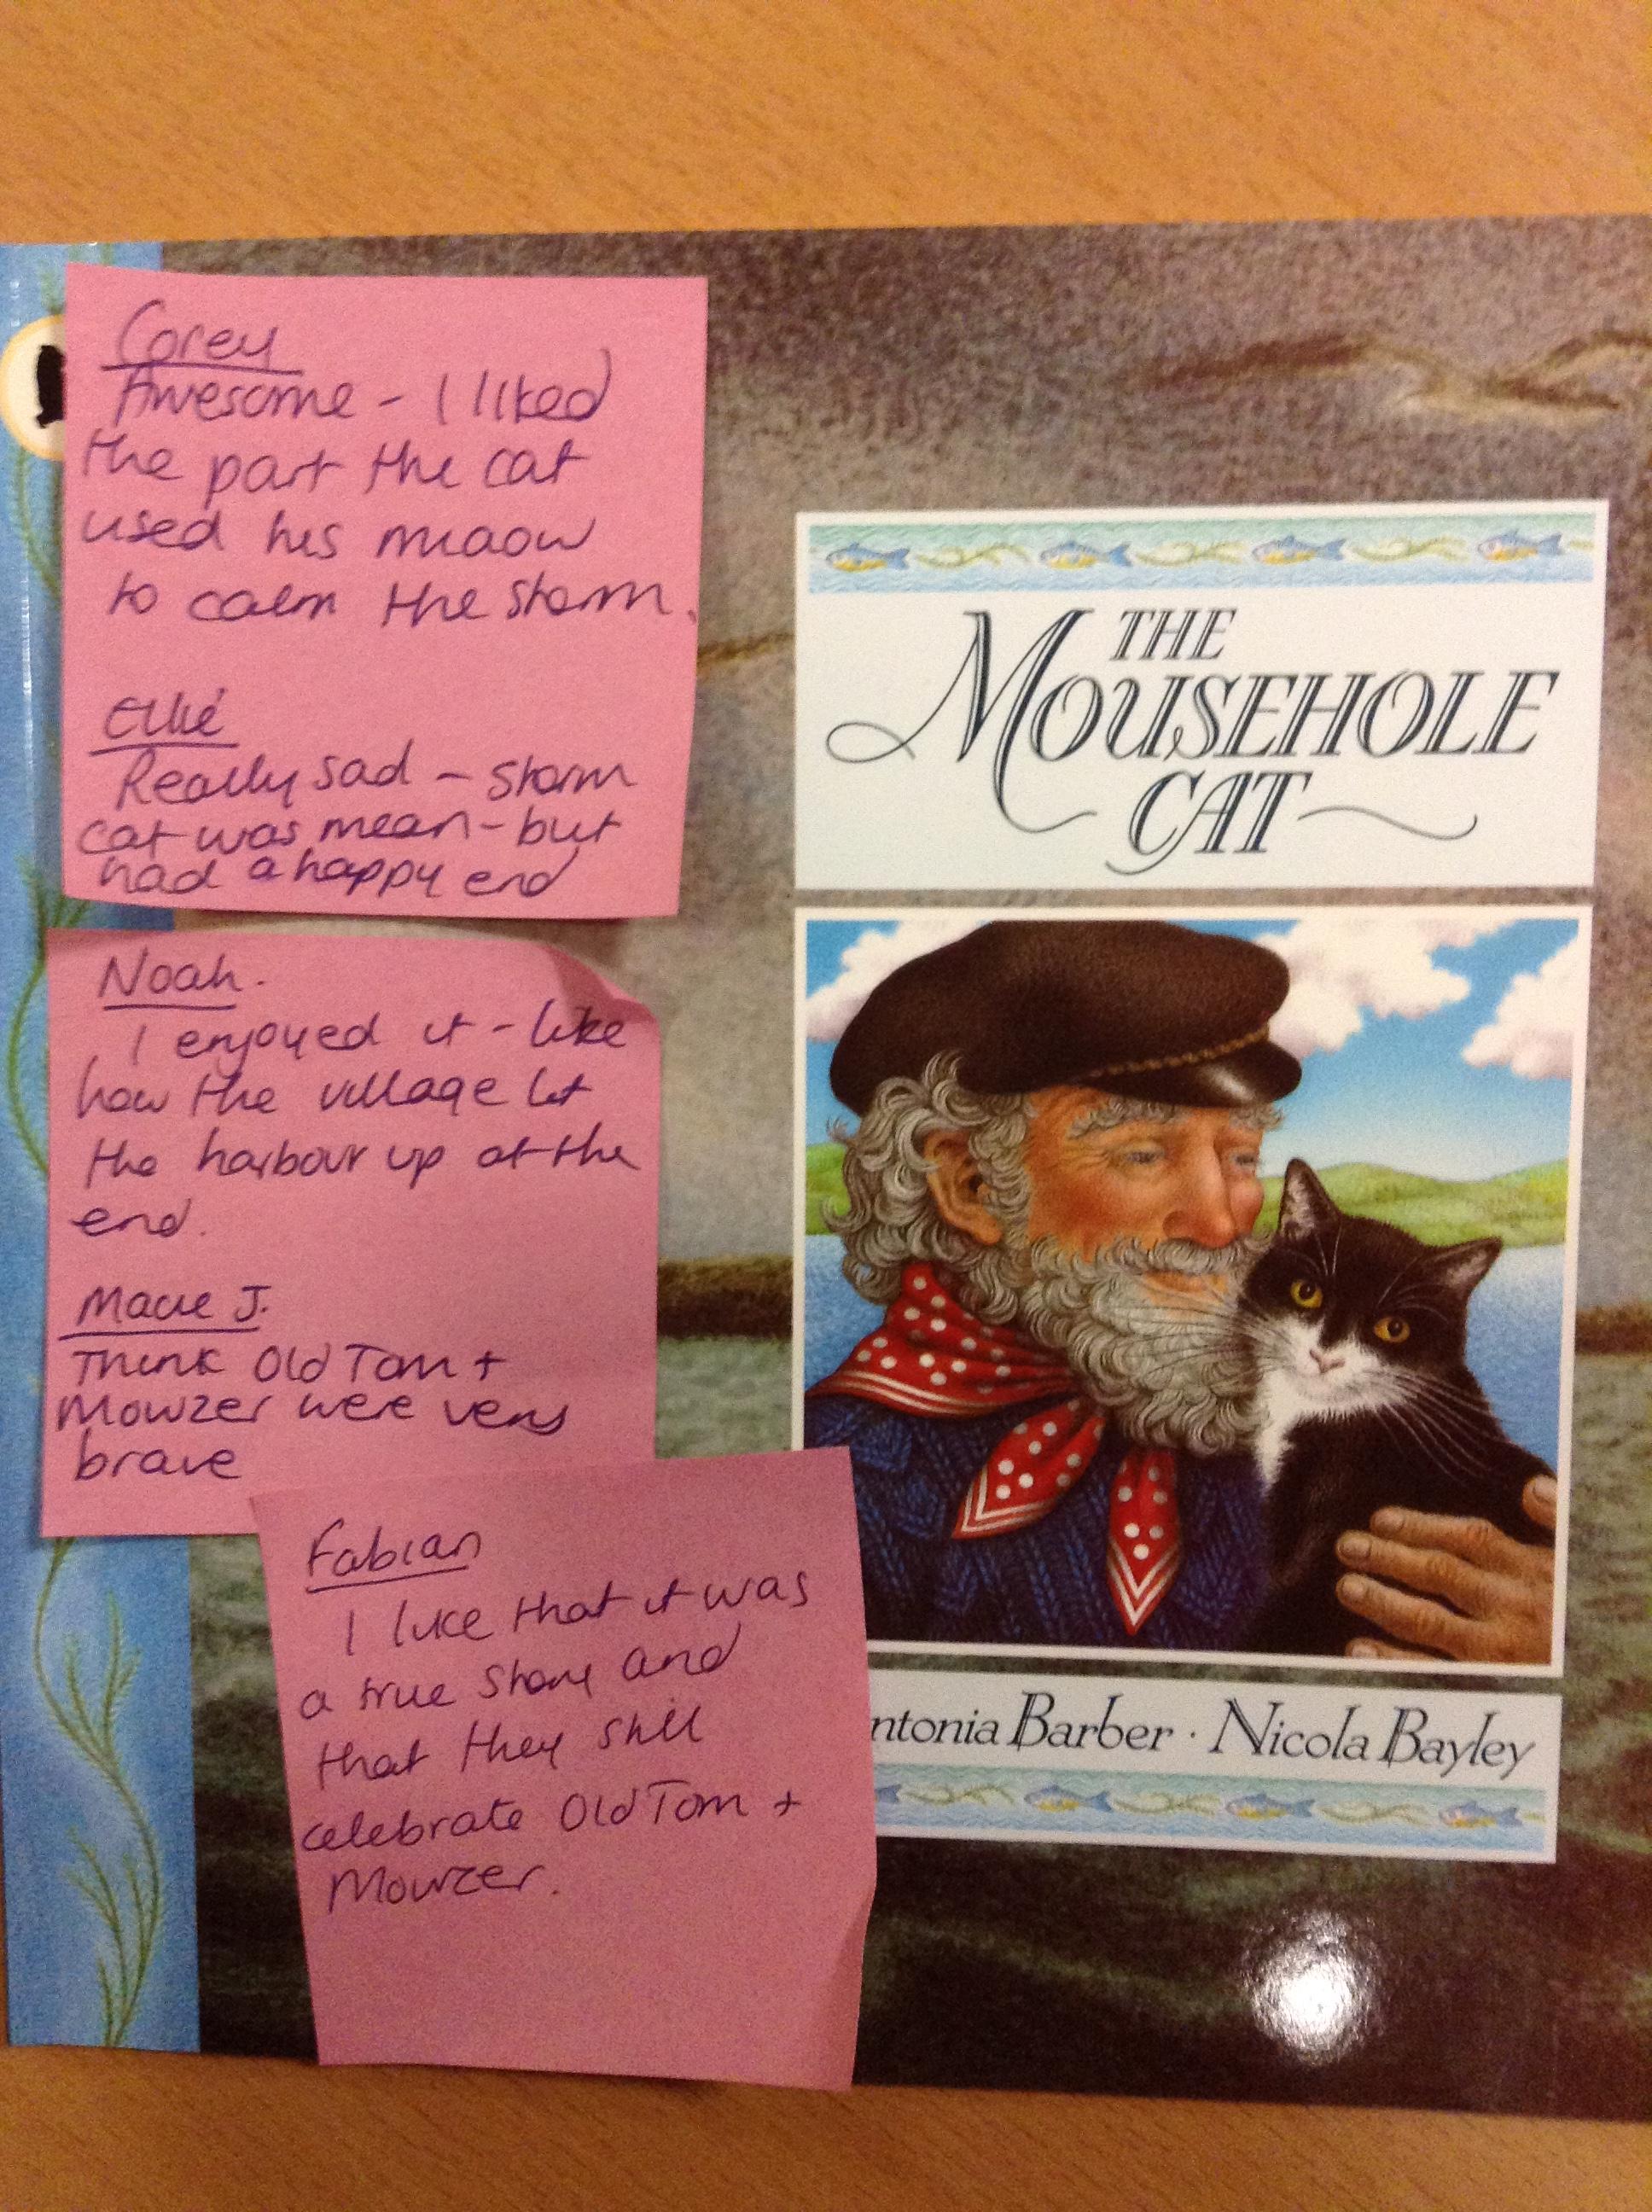 Corey
Awesome - I liked
the part the cat
used his miaow
to calm the storm.
Ellié
Really sad - storm
cat was mean - but
had a happy end
Noah.
I enjoyed it - like
how the village lit
the harbour up at the
end.
Macie J.
Think Old Tom +
Mowzer were very
brave
Fabian
I like that it was
a true story and
that they still
celebrate Old Tom +
Mowzer.
THE
MOUSEHOLE
CAT
ntonia Barber · Nicola Bayley